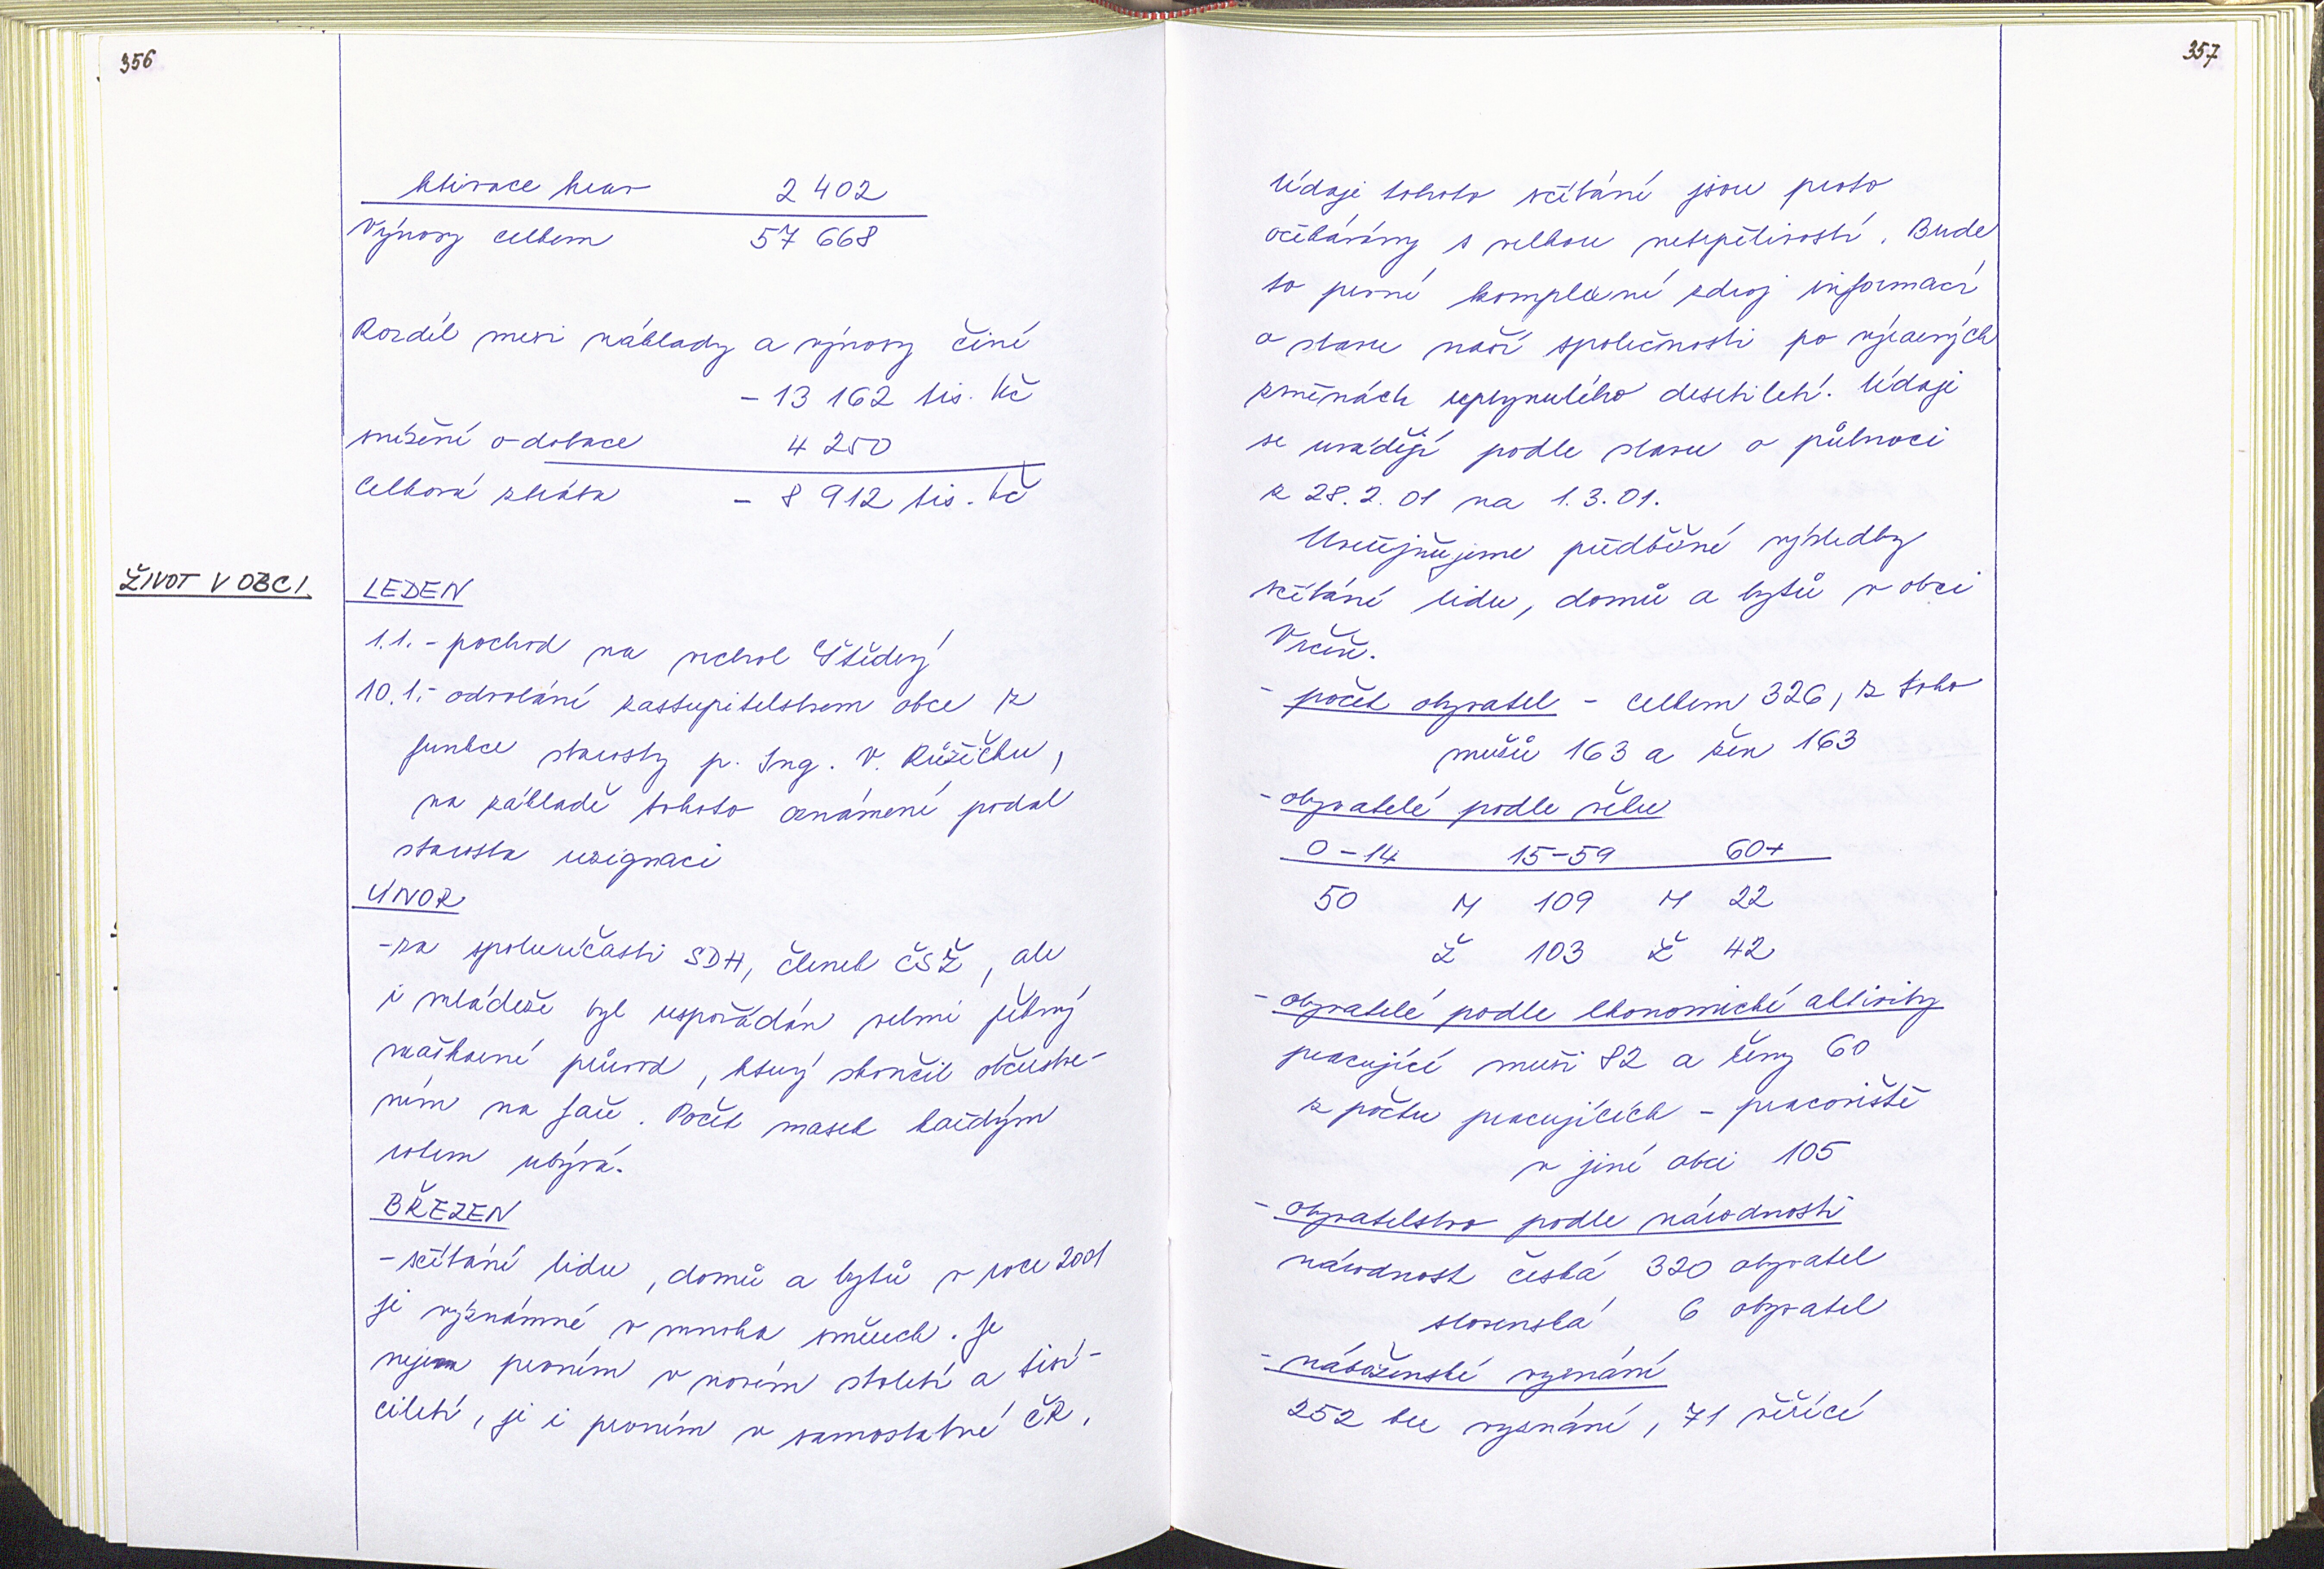 356
aktivace krav 2 402
Výnosy celkem 57 668
Rozdíl mezi náklady a výnosy činí
- 13 162 tis. Kč
snížení o dotace 4 250
Celková ztráta - 8 912 tis. Kč
ŽIVOT V OBCI.
LEDEN
1.1. - pochod na vrchol Štědrý
10.1. - odvolání zastupitelstvem obce z
funkce starosty p. Ing. V. Růžičku,
na základě tohoto oznámení podal
starosta rezignaci
ÚNOR
- za spoluúčasti SDH, členek ČSŽ, ale
i mládeže byl uspořádán velmi pěkný
maškarní průvod, který skončil občerstve-
ním na faře. Počet masek každým
rokem ubývá.
BŘEZEN
- sčítání lidu, domů a bytů v roce 2001
je významné v mnoha směrech. Je
nejen prvním v novém století a tisí-
ciletí, je i prvním v samostatné ČR.
357
Údaje tohoto sčítání jsou proto
očekávány s velkou netrpělivostí. Bude
to první komplexní zdroj informací
o stavu naší společnosti po výrazných
změnách uplynulého desetiletí. Údaje
se uvádějí podle stavu o půlnoci
z 28.2.01 na 1.3.01.
Uveřejňujeme předběžné výsledky
sčítání lidu, domů a bytů v obci
Vrčeň.
- počet obyvatel - celkem 326, z toho
mužů 163 a žen 163
- obyvatelé podle věku
0-14 15-59 60+
50 M 109 M 22
Ž 103 Ž 42
- obyvatelé podle ekonomické aktivity
pracující muži 82 a ženy 60
z počtu pracujících - pracoviště
v jiné obci 105
- obyvatelstvo podle národnosti
národnost česká 320 obyvatel
slovenská 6 obyvatel
- náboženské vyznání
252 bez vyznání, 71 věřící